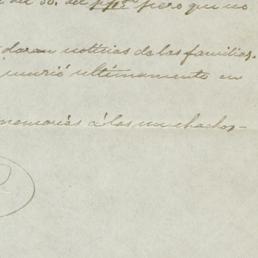 del 30. del pp.do pero que no
daran noticias de las familias.
murió ultimamente en
memorias á las muchachos-